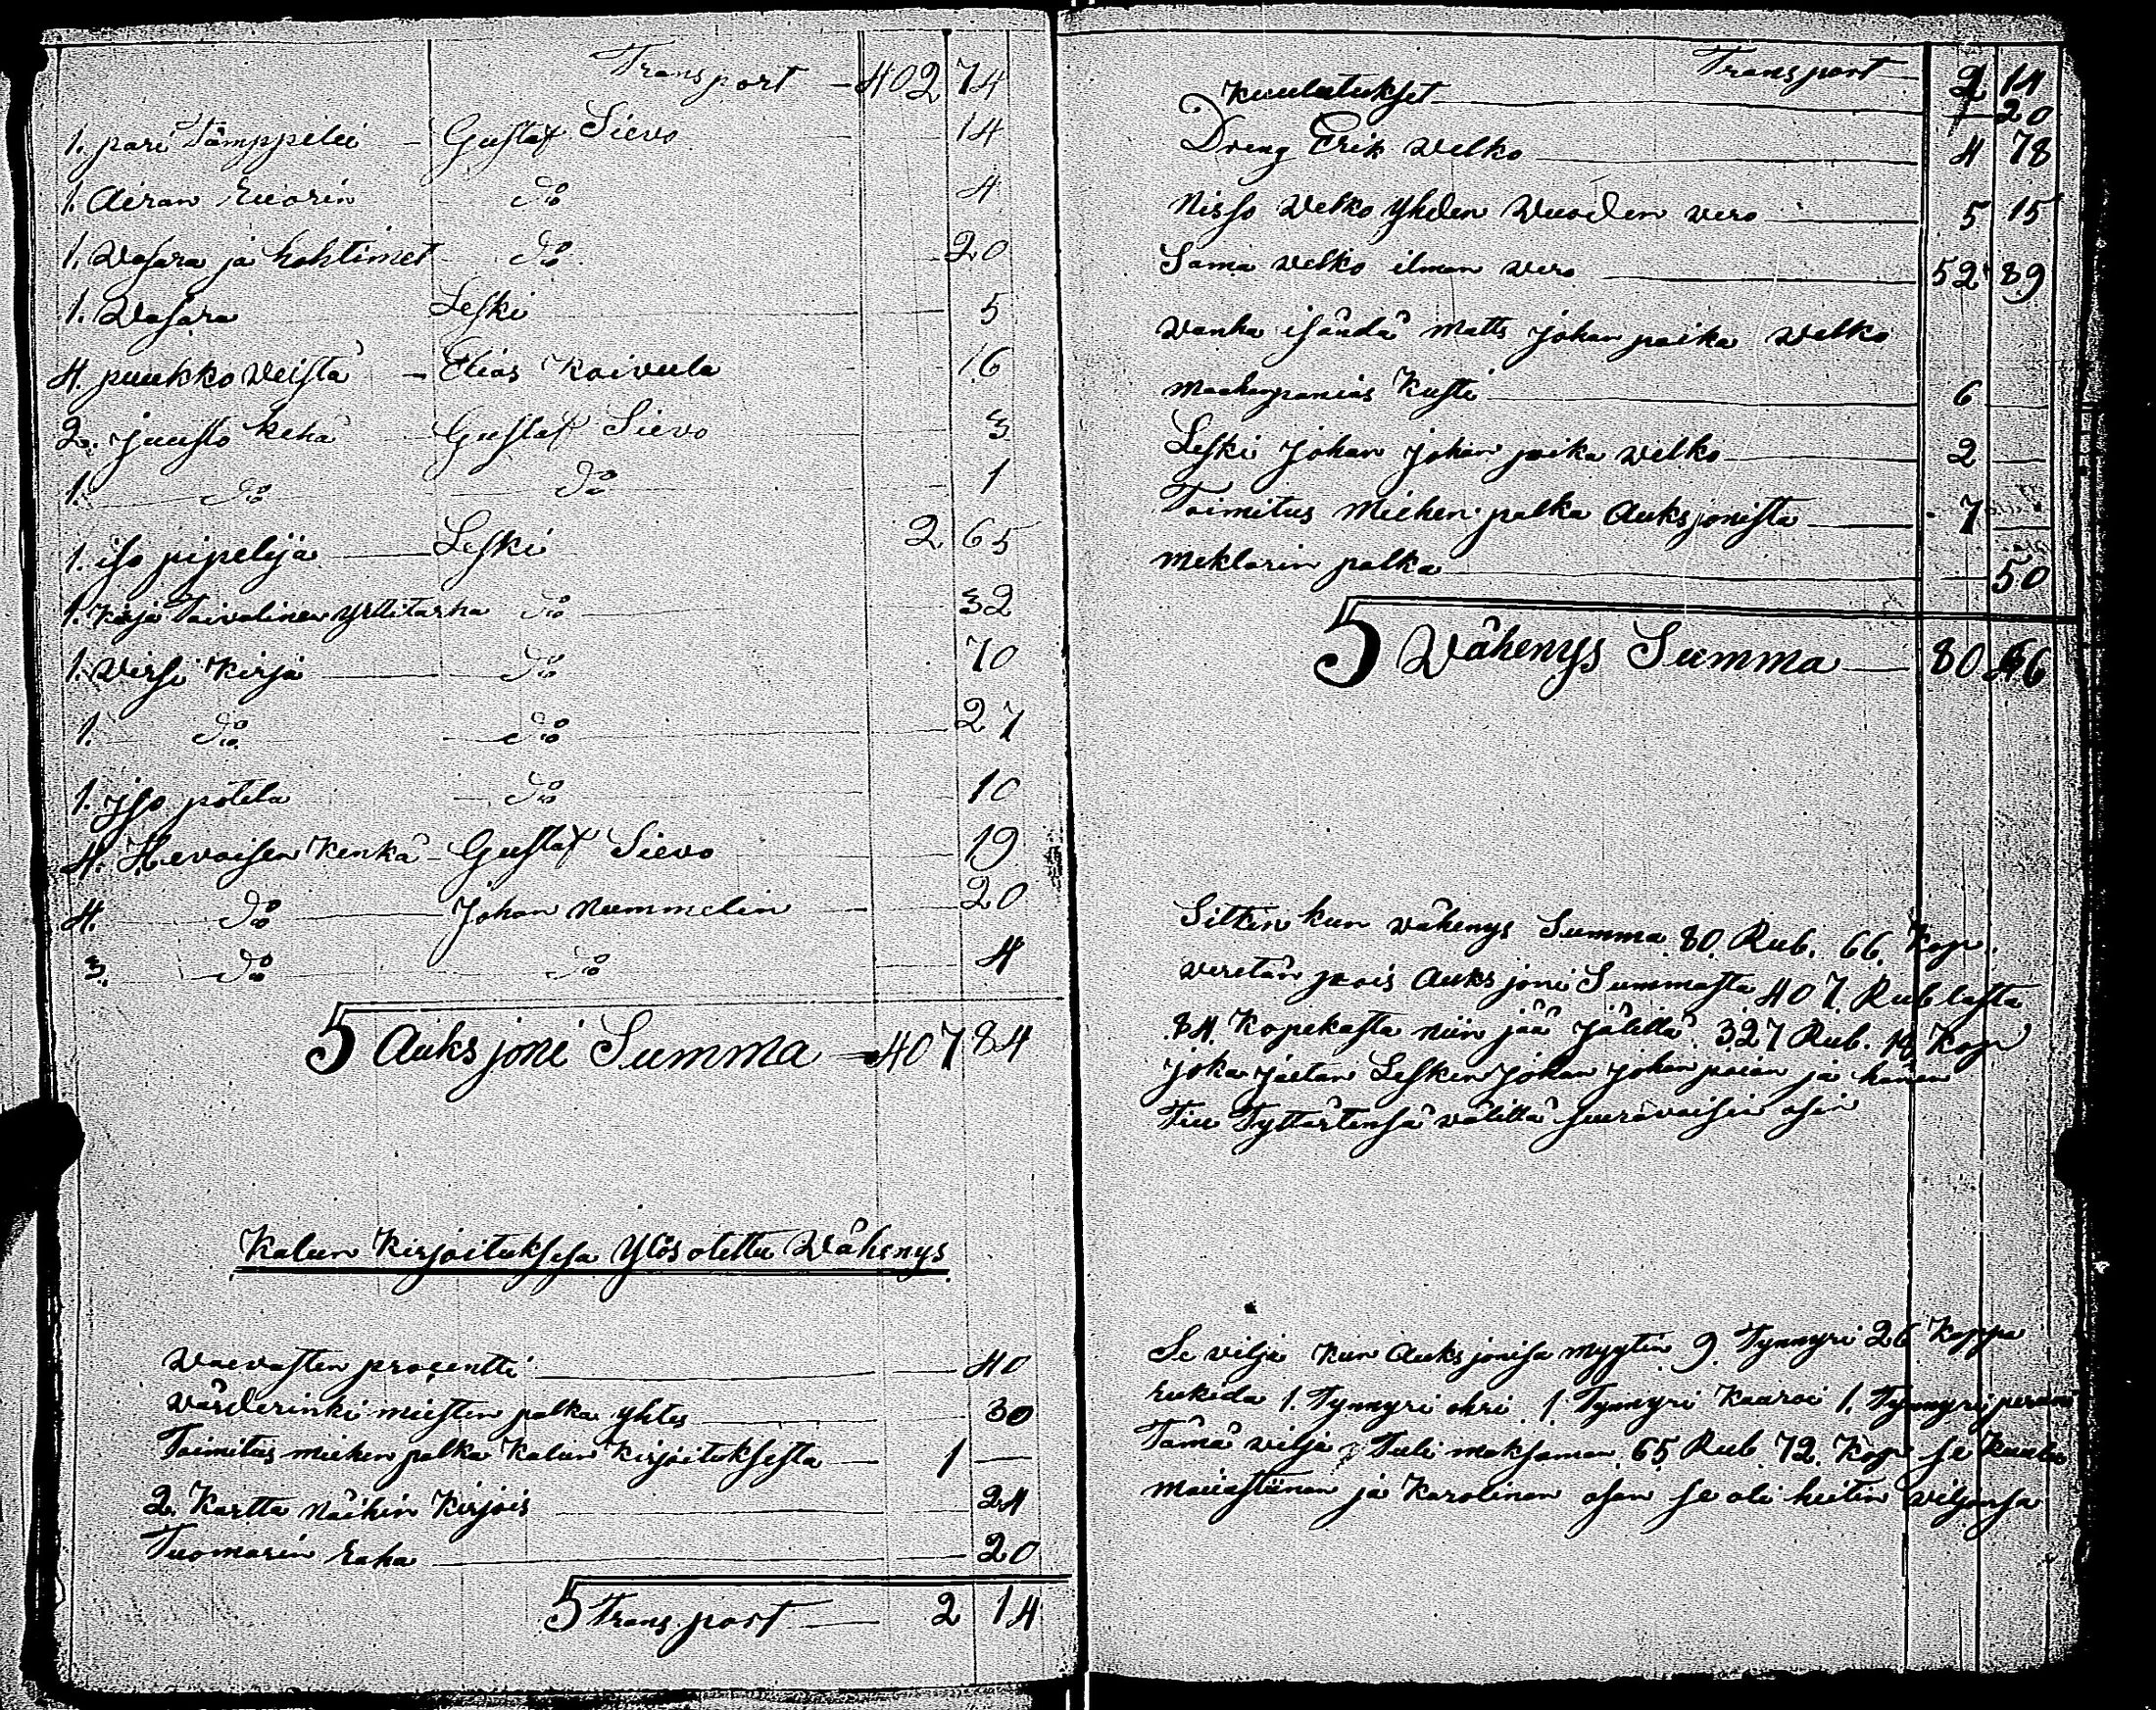 Transport 402 74
1. pari Tämppelii Gustaf Sievo 14
1. Airan Kuorin do 4
1. Vasara ja hohtimet do 20
1. Vasara Leski 5
4. puukko veistä Elias Koivula 16
2. juusto kehä Gustaf Sievo 3
1. do do 1
1. iso pipelija Leski 2 65
1. Kirja Taivalinen yrttitarha do 32
1. Virsi Kirja do 70
1. do do 27
1. Iso potela do 10
4. Hevoisen Kenkä Gustaf Sievo 19
4. do Johan Nummelin 20
3. do do 4
S Auksjoni Summa 407 84
Kalun Kirjoituksesa Ylös otettu Vähenys
Vaevasten prosentti 40
Värderinki miesten palka yhtes 30
Toimitus miehen palka Kalun Kirjoituksesta 1 —
2. Kartta Näihin Kirjois 24
Tuomarin Raha 20
S Transport 2 14
Transport 2 14
Kuulutukset — 20
Dreng Erik Velko 4 78
Nisso Velko Yhden Vuoden vero 5 15
Sama Velko ilman vero 52 89
Vanha isändä Matts Johan poika Velko
Kusti 6 —
Leski Johan Johan poika velko 2 —
Toimitus Miehen palka Auksjonista 7 —
Meklarin palka — 50
S Vähenys Summa 80 66
Sitten kun vähenys Summa 80 Rub. 66. Kop.
veretän pois Auksjoni Summasta 407 Rublasta
84. Kopekasta Niin jää Jälittä 327 Rub. 18 Kop
joka Jaetan Lesken Johan Johan poian ja hänen
Tiu Tyttärtensä välittä seuravaisin osin
Se vilja Kun Auksjonisa myytin 9. Tynnyri 26 Kappa
Rukida 1. Tynnyri ohri 1. Tynnyri Kauroi 1. Tynnyri
Tämä vilja Tuli maksaman 65 Rub 72. Kop se Kuulu
ja Karolinan osan se oli heitin viljansa